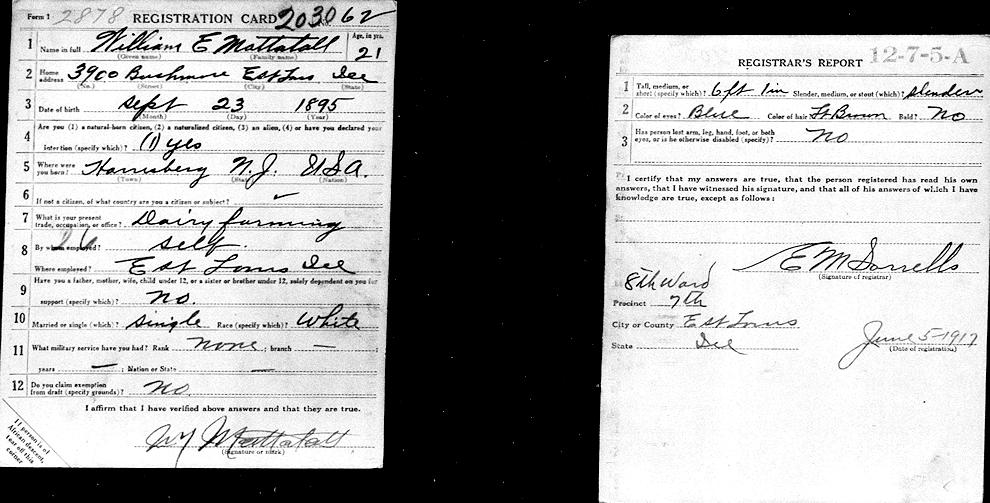 Form 1 2878 REGISTRATION CARD 203062
1 Name in full William E Mattatall Age, in yrs. 21
(Given name) (Family name)
2 Home address 3900 Bushmore E St Louis Ill
(No.) (Street) (City) (State)
3 Date of birth Sept 23 1895
(Month) (Day) (Year)
4 Are you (1) a natural-born citizen, (2) a naturalized citizen, (3) an alien, (4) or have you declared your
intention (specify which)? (1) yes
5 Where were you born? Harrisberg N.J. U.S.A.
(Town) (State) (Nation)
6 If not a citizen, of what country are you a citizen or subject?
7 What is your present trade, occupation, or office? Dairy farming
8 By whom employed? self.
Where employed? E St Louis Ill
9 Have you a father, mother, wife, child under 12, or a sister or brother under 12, solely dependent on you for
support (specify which)? no.
10 Married or single (which)? single Race (specify which)? White
11 What military service have you had? Rank none ; branch — ;
years — ; Nation or State —
12 Do you claim exemption from draft (specify grounds)? no.
I affirm that I have verified above answers and that they are true.
Mattatall
(Signature or mark)
If person is of
African descent,
tear off this
corner
REGISTRAR'S REPORT 12-7-5-A
1 Tall, medium, or short (specify which)? 6ft 1in Slender, medium, or stout (which)? slender
2 Color of eyes? Blue Color of hair Lt Brown Bald? No
3 Has person lost arm, leg, hand, foot, or both eyes, or is he otherwise disabled (specify)? No
I certify that my answers are true, that the person registered has read his own
answers, that I have witnessed his signature, and that all of his answers of which I have
knowledge are true, except as follows:
E M Sorrells
(Signature of registrar)
8th Ward
Precinct 7th
City or County E St Louis
State Ill
June 5-1917
(Date of registration)